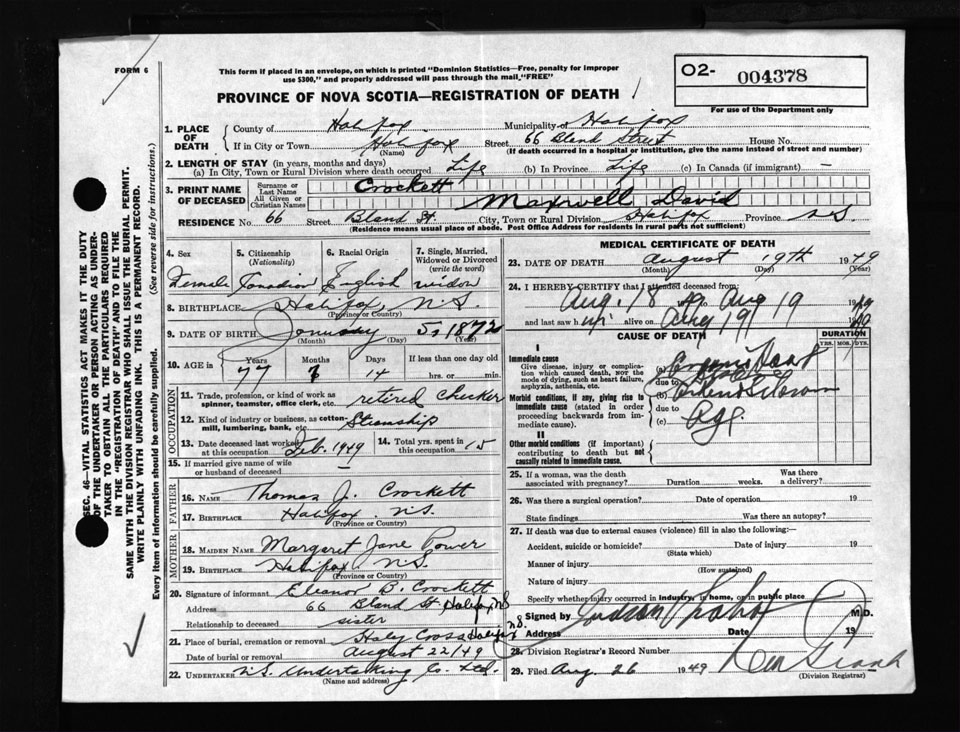 FORM 6
This form if placed in an envelope, on which is printed "Dominion Statistics—Free, penalty for improper
use $300," and properly addressed will pass through the mail "FREE"
PROVINCE OF NOVA SCOTIA—REGISTRATION OF DEATH
O2- 004378
For use of the Department only
SEC. 46—VITAL STATISTICS ACT MAKES IT THE DUTY
OF THE UNDERTAKER OR PERSON ACTING AS UNDER-
TAKER TO OBTAIN ALL THE PARTICULARS REQUIRED
IN THE "REGISTRATION OF DEATH" AND TO FILE THE
SAME WITH THE DIVISION REGISTRAR WHO SHALL ISSUE THE BURIAL PERMIT.
WRITE PLAINLY WITH UNFADING INK. THIS IS A PERMANENT RECORD.
Every item of information should be carefully supplied. (See reverse side for instructions.)
1. PLACE OF DEATH County of Halifax Municipality of Halifax
If in City or Town Halifax Street 66 Bland Street House No.
(Name) (If death occurred in a hospital or institution, give the name instead of street and number)
2. LENGTH OF STAY (in years, months and days)
(a) In City, Town or Rural Division where death occurred Life (b) In Province Life (c) In Canada (if immigrant) —
3. PRINT NAME OF DECEASED Surname or Last Name Crockett
All Given or Christian Names Maxwell David
RESIDENCE No. 66 Street Bland St. City, Town or Rural Division Halifax Province N.S
(Residence means usual place of abode. Post Office Address for residents in rural parts not sufficient)
4. Sex 5. Citizenship (Nationality) 6. Racial Origin 7. Single, Married, Widowed or Divorced (write the word)
Canadian English widow
8. BIRTHPLACE Halifax, N.S.
(Province or Country)
9. DATE OF BIRTH January 5, 1872
(Month) (Day) (Year)
10. AGE in Years Months Days If less than one day old
77 7 14 hrs. or min.
OCCUPATION
11. Trade, profession, or kind of work as spinner, teamster, office clerk, etc. retired checker
12. Kind of industry or business, as cotton-mill, lumbering, bank, etc. Steamship
13. Date deceased last worked at this occupation Feb. 1949 14. Total yrs. spent in this occupation 15
15. If married give name of wife or husband of deceased —
FATHER
16. NAME Thomas J. Crockett
17. BIRTHPLACE Halifax N.S.
(Province or Country)
MOTHER
18. MAIDEN NAME Margaret Jane Power
19. BIRTHPLACE Halifax N.S.
(Province or Country)
20. Signature of informant Eleanor B. Crockett
Address 66 Bland St Halifax, NS
Relationship to deceased sister
21. Place of burial, cremation or removal Holy Cross Halifax N.S.
Date of burial or removal August 22/49
22. UNDERTAKER N.S. Undertaking Co. Ltd.
(Name and address)
MEDICAL CERTIFICATE OF DEATH
23. DATE OF DEATH August 19th 1949
(Month) (Day) (Year)
24. I HEREBY CERTIFY that I attended deceased from:
Aug. 18 49 to Aug 19 1949
and last saw him alive on Aug 19 1949
CAUSE OF DEATH DURATION
YRS. MOS. DYS.
I
Immediate cause
Give disease, injury or complica-
tion which caused death, NOT the
mode of dying, such as heart failure,
asphyxia, asthenia, etc.
(a)
due to
Morbid conditions, if any, giving rise to
immediate cause (stated in order
proceeding backwards from im-
mediate cause).
(b)
due to
(c) Age
II
Other morbid conditions (if important)
contributing to death but not
causally related to immediate cause.
25. If a woman, was the death associated with pregnancy? Duration weeks. Was there a delivery?
26. Was there a surgical operation? Date of operation 19
State findings Was there an autopsy?
27. If death was due to external causes (violence) fill in also the following:—
Accident, suicide or homicide? Date of injury 19
(State which)
Manner of injury
(How sustained)
Nature of injury
Specify whether injury occurred in industry, in home, or in public place
Signed by M.D.
Address Date 19
28. Division Registrar's Record Number
29. Filed Aug. 26 1949
(Division Registrar)